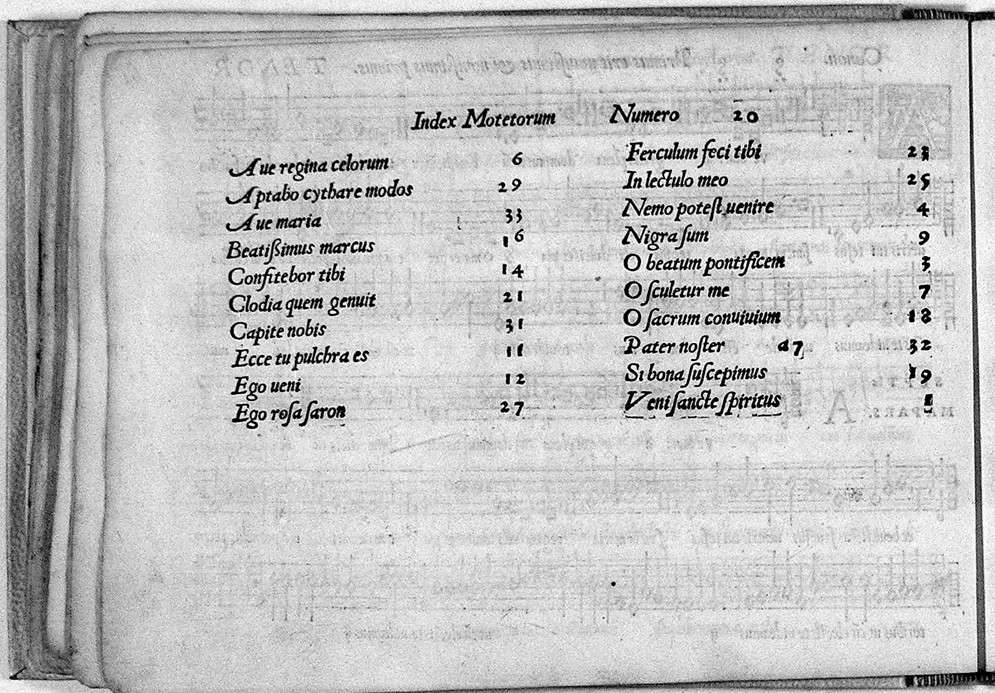 Index Motetorum Numero 20
Aue regina celorum 6
Aptabo cythare modos 29
Aue maria 33
Beatißimus marcus 16
Confitebor tibi 14
Clodia quem genuit 21
Capite nobis 31
Ecce tu pulchra es 11
Ego ueni 12
Ego rosa saron 27
Ferculum feci tibi 23
In lectulo meo 25
Nemo potest uenire 4
Nigra sum 9
O beatum pontificem 3
O sculetur me 7
O sacrum conuiuium 18
Pater noster a7 32
Si bona suscepimus 19
Veni sancte spiritus 1